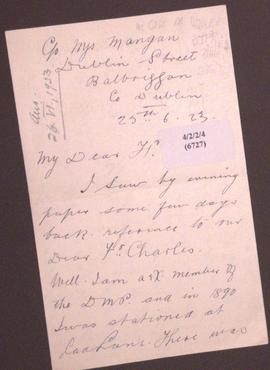 C/o Mrs Mangan
Dublin Street
Balbriggan
Co Dublin
25th 6. 23.
Ans:
26.VI.1923
4/2/2/4
(6727)
My Dear Fr
I saw by evening
paper some few days
back reference to our
Dear Fr Charles.
Well. I am a ex member of
the D.M.P. and in 1890
I was stationed at
There was